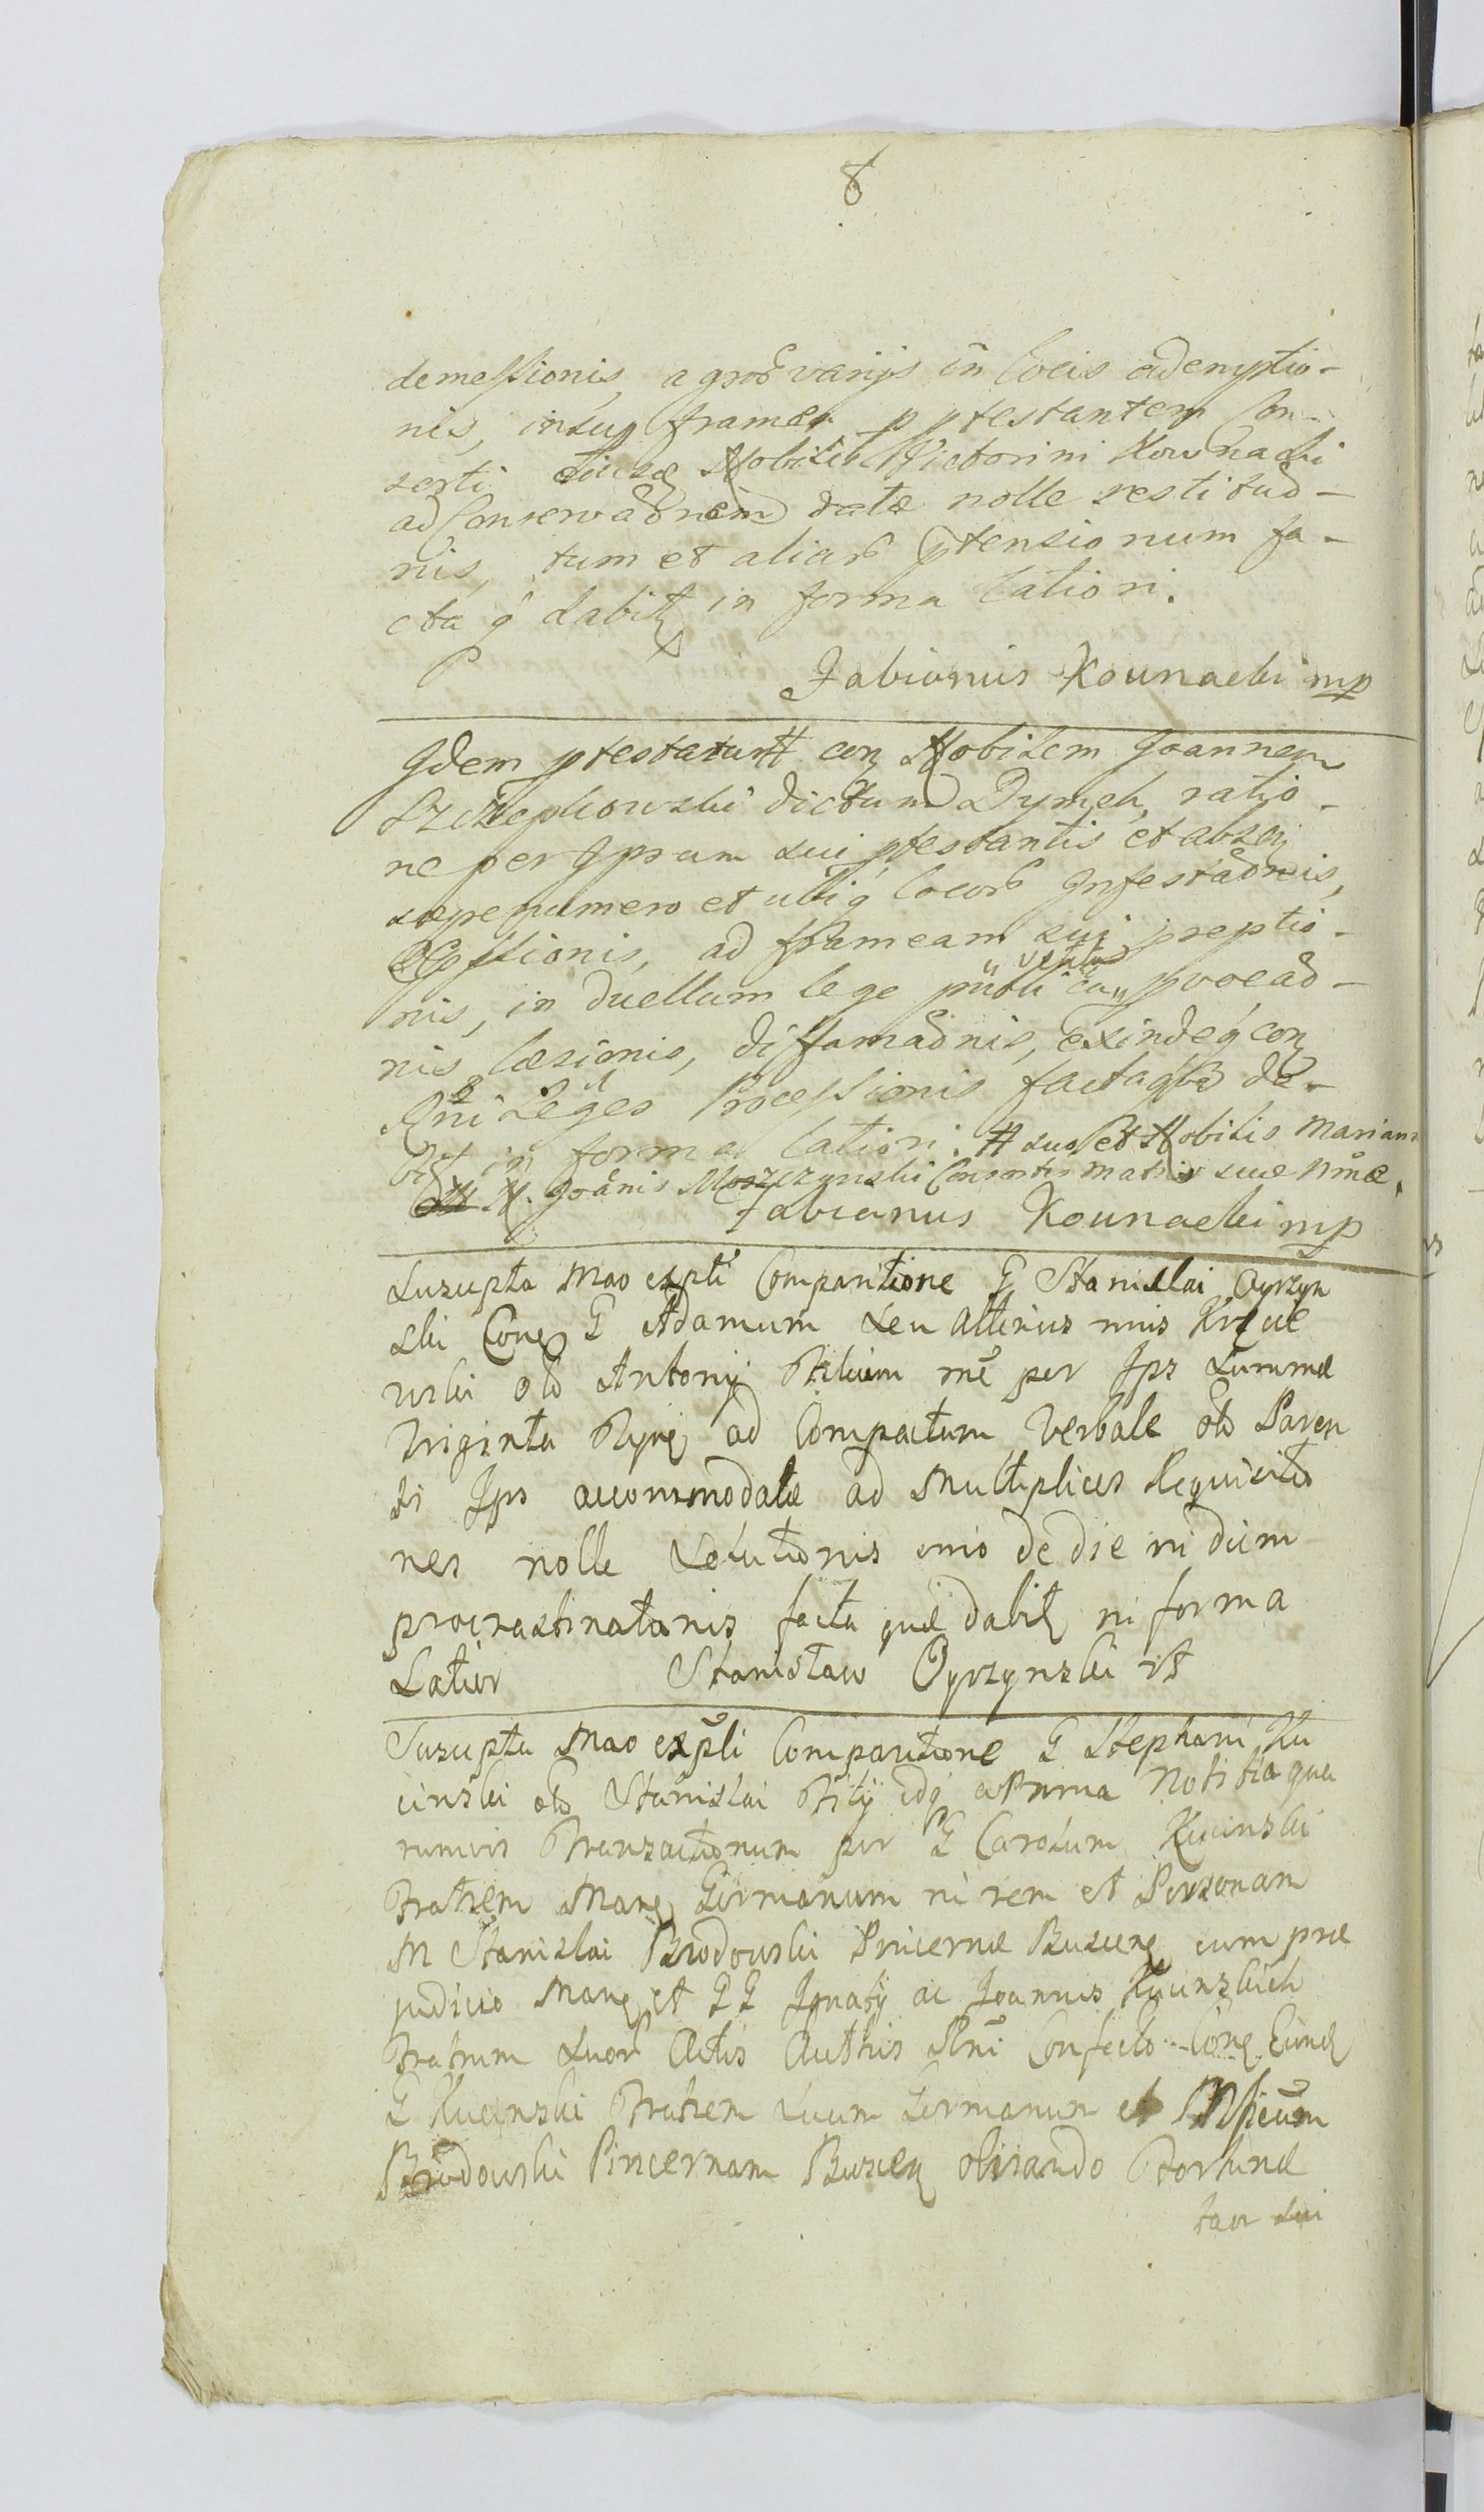 8
demessionis, agroꝝ varijs in locis ademptio-
nis, insup frameæ p ptestantem Con-
serti eiusq Nobilis Victorini Kownacki
ad Conservaonem datæ nolle restituo-
nis, tum et aliaꝝ ptensionum fa-
cta q dabitʒ in forma latiori.
Fabianus Kounacki mp
Idem ptestatur # con Nobilem Joannem
Szczepkowski dictum Dymek, ratio-
ne per Ipsum sui ptestantis et
sæpenumero et ubiq locoꝝ Infestaonis,
ad frameam sui preptio-
nis, in duellum lege vetita pvocao-
nis læsionis, diffamaonis, exindeq con
Rni Leges Processionis factaq da-
bit in forma latiori. # suo et Nobilis Mariann
N. Joanis Moszczynski Consortis matris suæ nnæ.
Fabianus Kounacki mp
Suscpta Mao expti Comparitione G Stanislai Oyrzyn
ski Conq G Adamum seu alterius nnis
wski olo Antonij Filium mē per Ips Summæ
Triginta ad Compactum Verbale olo Paren
ti Ips accommodatæ ad Multiplices Requisitio
nes nolle Solutionis imo de die in diem
procrastinationis facta quæ dabitʒ in forma
Latior Stanisław Oyrzynski
Suscpta Mao expli Comparitione G Stephani Ku
cinski olo Stanislai Filij idq a Prima Notitia qua
rumvis Transactionum per G Carolum Kucinski
Fratrem Manq Germanum in rem et Personam
M Stanislai Brodowski Pincernæ Buscenq cum præ
judicio Manq et GG Ignatij ac Joannis Kucinskich
Fratrum Suoꝝ Actis Authis Rni Confecto Conq Eundʒ
G Kucinski Fratrem Suum Germanum et Mficum
Brodowski Pincernam Buscenq Fortunæ